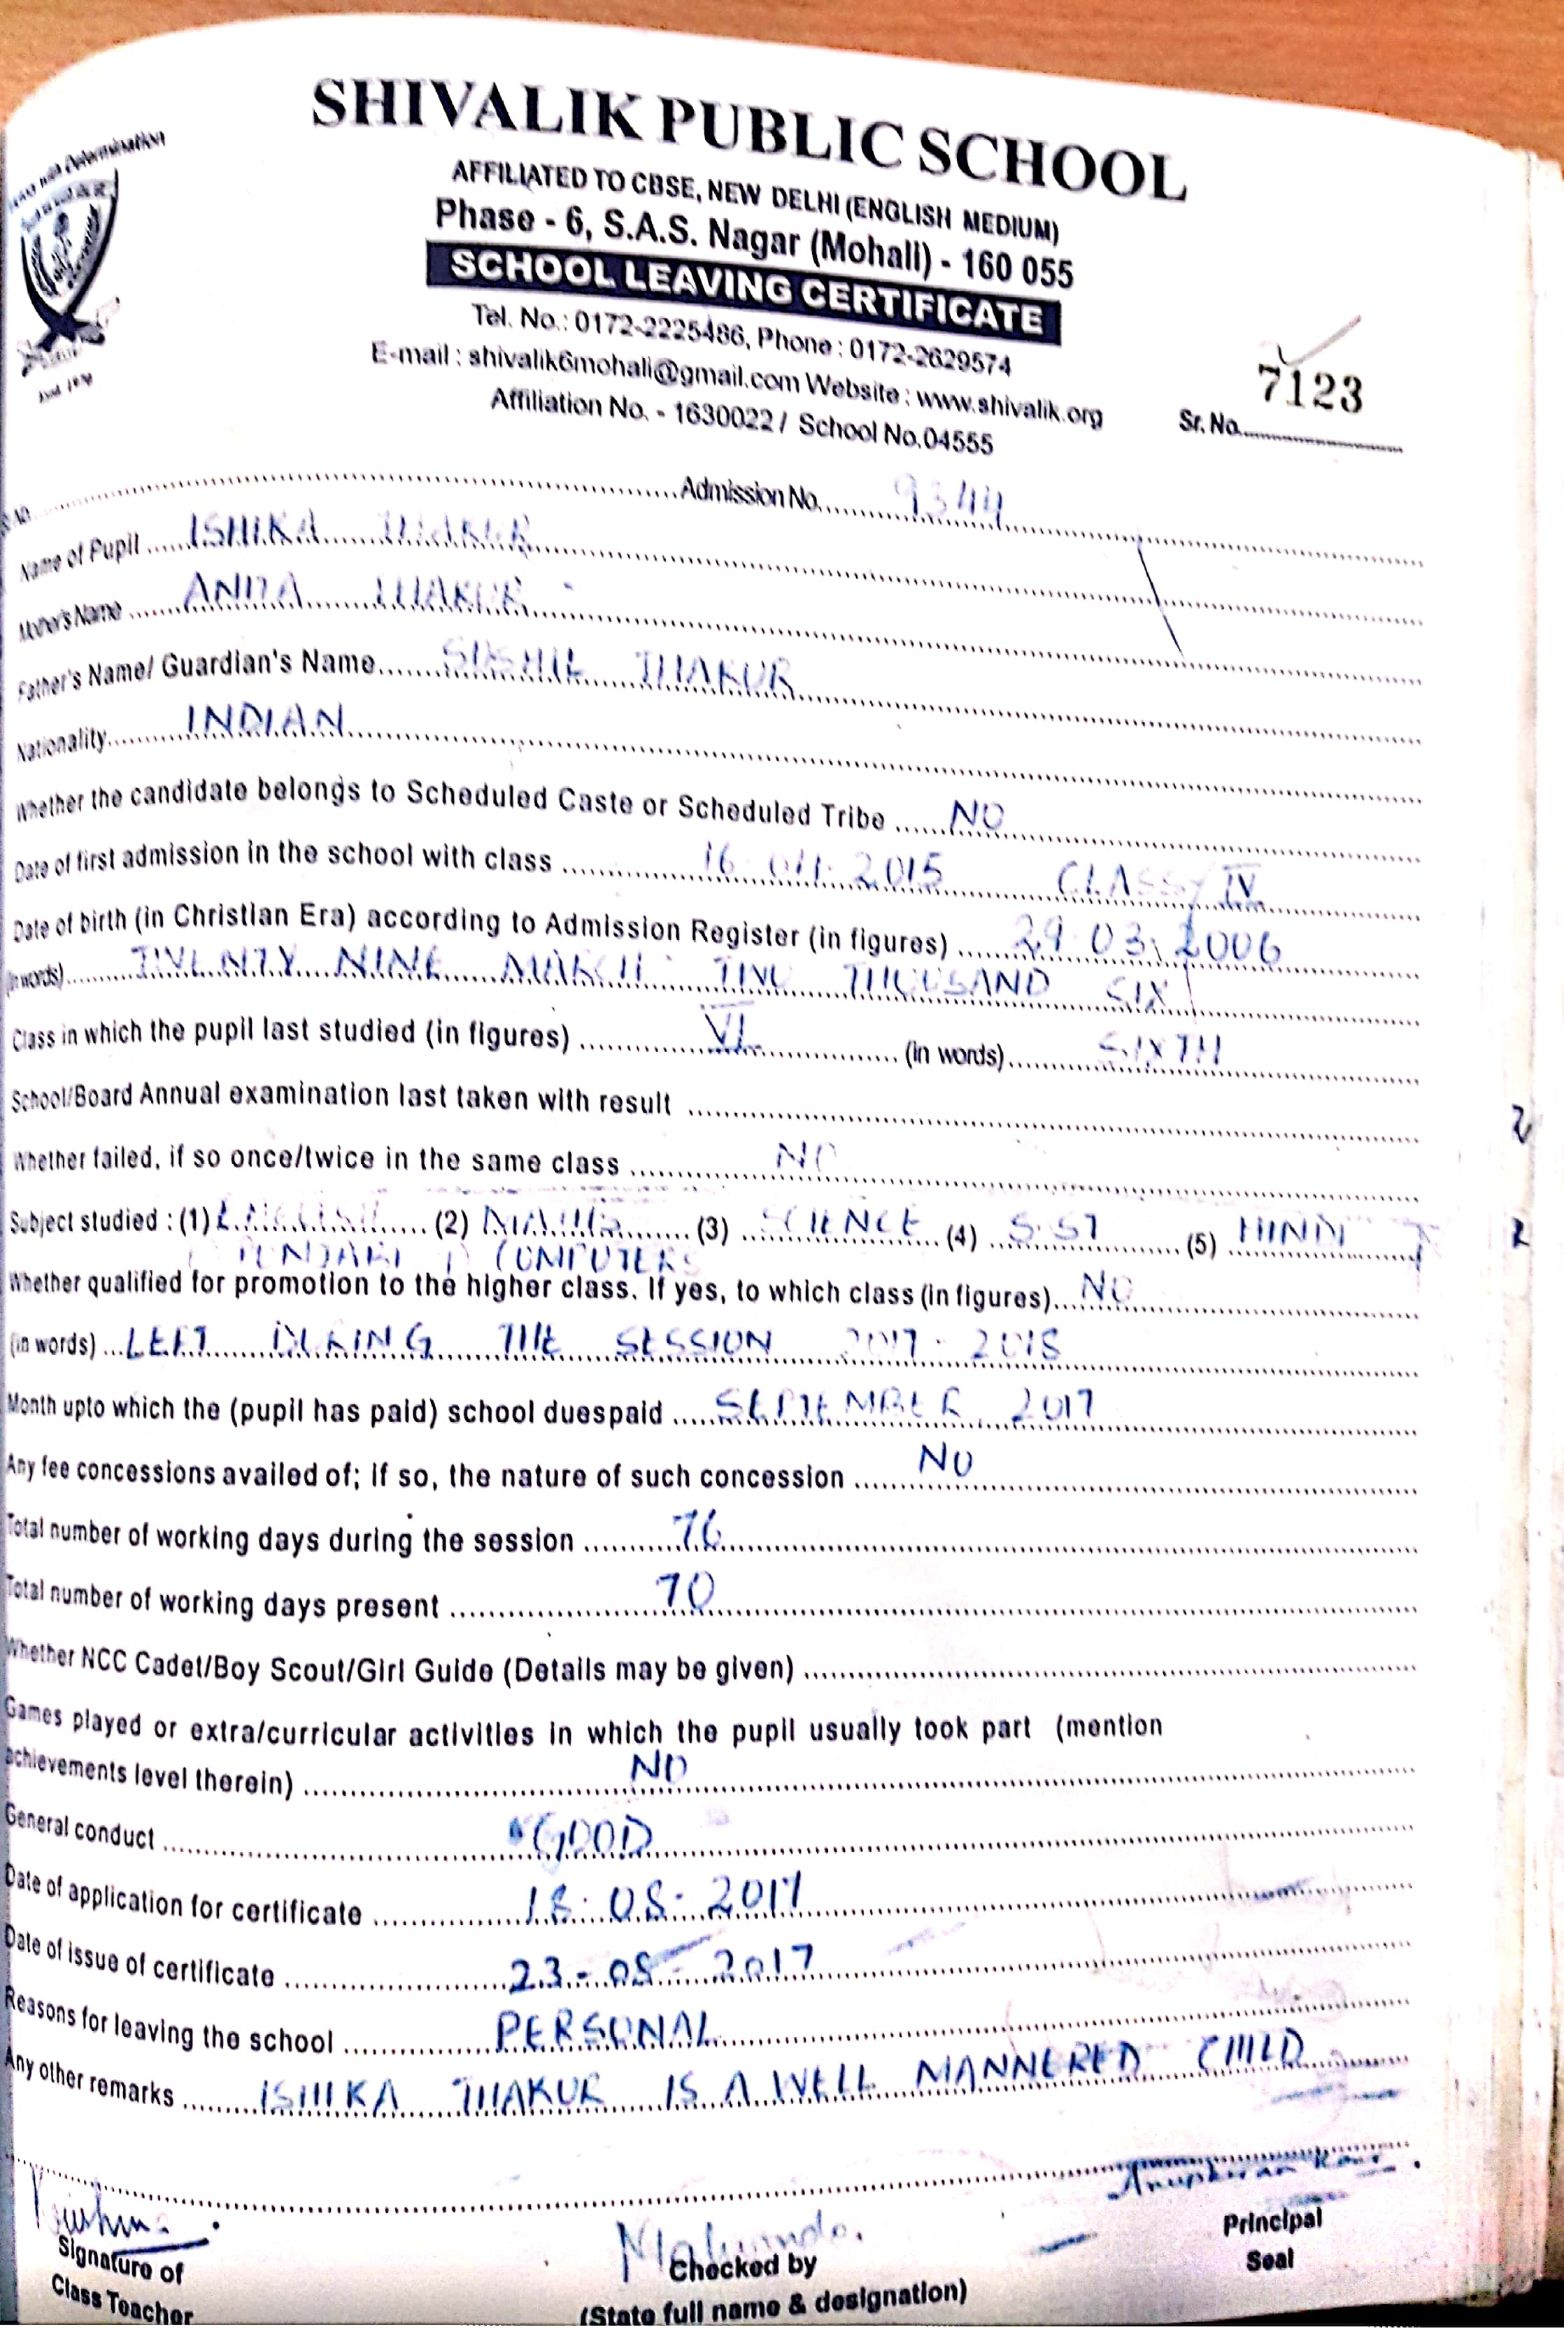 SHIVALIK PUBLIC SCHOOL
AFFILIATED TO CBSE, NEW DELHI (ENGLISH MEDIUM)
Phase - 6, S.A.S. Nagar (Mohali) - 160 055
SCHOOL LEAVING CERTIFICATE
Tel. No.: 0172-2225486, Phone : 0172-2629574
E-mail : shivalik6mohali@gmail.com Website : www.shivalik.org
Affiliation No. - 1630022 / School No.04555
Sr. No. 7123
Admission No. 9344
Name of Pupil ISHIKA THAKUR
Mother's Name ANITA THAKUR
Father's Name/ Guardian's Name SUSHIL THAKUR
Nationality INDIAN
Whether the candidate belongs to Scheduled Caste or Scheduled Tribe NO
Date of first admission in the school with class 16-04-2015 CLASS IV
Date of birth (in Christian Era) according to Admission Register (in figures) 29.03.2006
(in words) TWENTY NINE MARCH TWO THOUSAND SIX
Class in which the pupil last studied (in figures) VI (in words) SIXTH
School/Board Annual examination last taken with result
Whether failed, if so once/twice in the same class NO
Subject studied : (1) ENGLISH (2) MATHS (3) SCIENCE (4) S.ST (5) HINDI
PUNJABI COMPUTERS
Whether qualified for promotion to the higher class. If yes, to which class (in figures) NO
(in words) LEFT DURING THE SESSION 2017-2018
Month upto which the (pupil has paid) school duespaid SEPTEMBER 2017
Any fee concessions availed of; if so, the nature of such concession NO
Total number of working days during the session 76
Total number of working days present 70
Whether NCC Cadet/Boy Scout/Girl Guide (Details may be given)
Games played or extra/curricular activities in which the pupil usually took part (mention
achievements level therein) NO
General conduct GOOD
Date of application for certificate 18-08-2017
Date of issue of certificate 23-08-2017
Reasons for leaving the school PERSONAL
Any other remarks ISHIKA THAKUR IS A WELL MANNERED CHILD
Signature of
Class Teacher
Checked by
(State full name & designation)
Principal
Seal